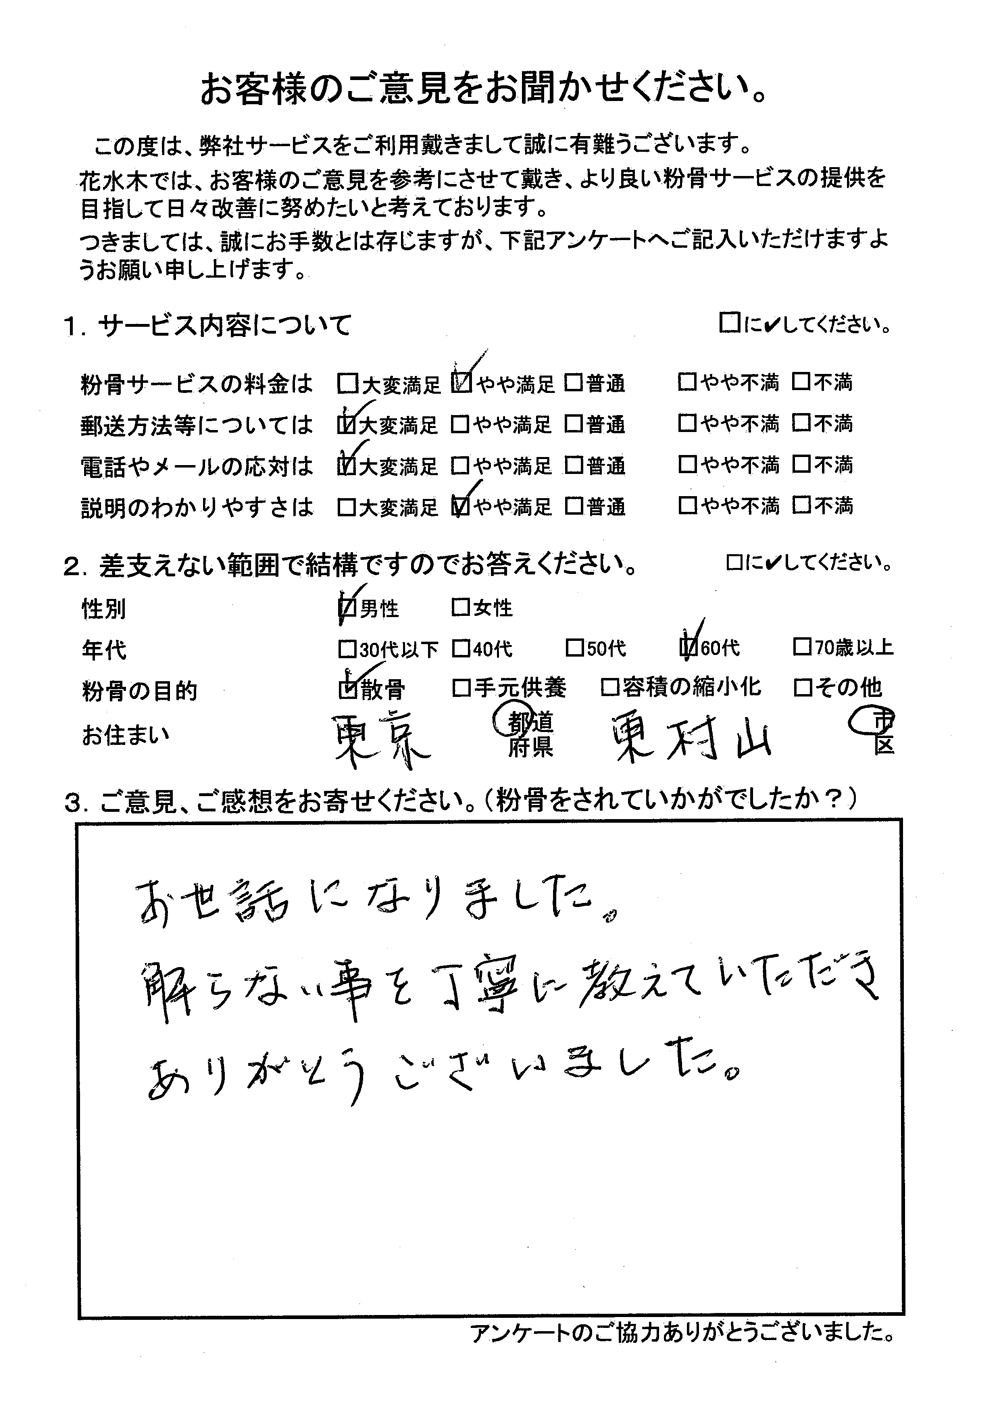 お客様のご意見をお聞かせください。
この度は、弊社サービスをご利用戴きまして誠に有難うございます。
花水木では、お客様のご意見を参考にさせて戴き、より良い粉骨サービスの提供を
目指して日々改善に努めたいと考えております。
つきましては、誠にお手数とは存じますが、下記アンケートへご記入いただけますよ
うお願い申し上げます。
1. サービス内容について □に✔してください。
粉骨サービスの料金は □大変満足 ☑やや満足 □普通 □やや不満 □不満
郵送方法等については ☑大変満足 □やや満足 □普通 □やや不満 □不満
電話やメールの応対は ☑大変満足 □やや満足 □普通 □やや不満 □不満
説明のわかりやすさは □大変満足 ☑やや満足 □普通 □やや不満 □不満
2. 差支えない範囲で結構ですのでお答えください。 □に✔してください。
性別 ☑男性 □女性
年代 □30代以下 □40代 □50代 ☑60代 □70歳以上
粉骨の目的 ☑散骨 □手元供養 □容積の縮小化 □その他
お住まい 東京 都道府県 東村山 市区
3. ご意見、ご感想をお寄せください。(粉骨をされていかがでしたか?)
お世話になりました。
解らない事を丁寧に教えていただき
ありがとうございました。
アンケートのご協力ありがとうございました。